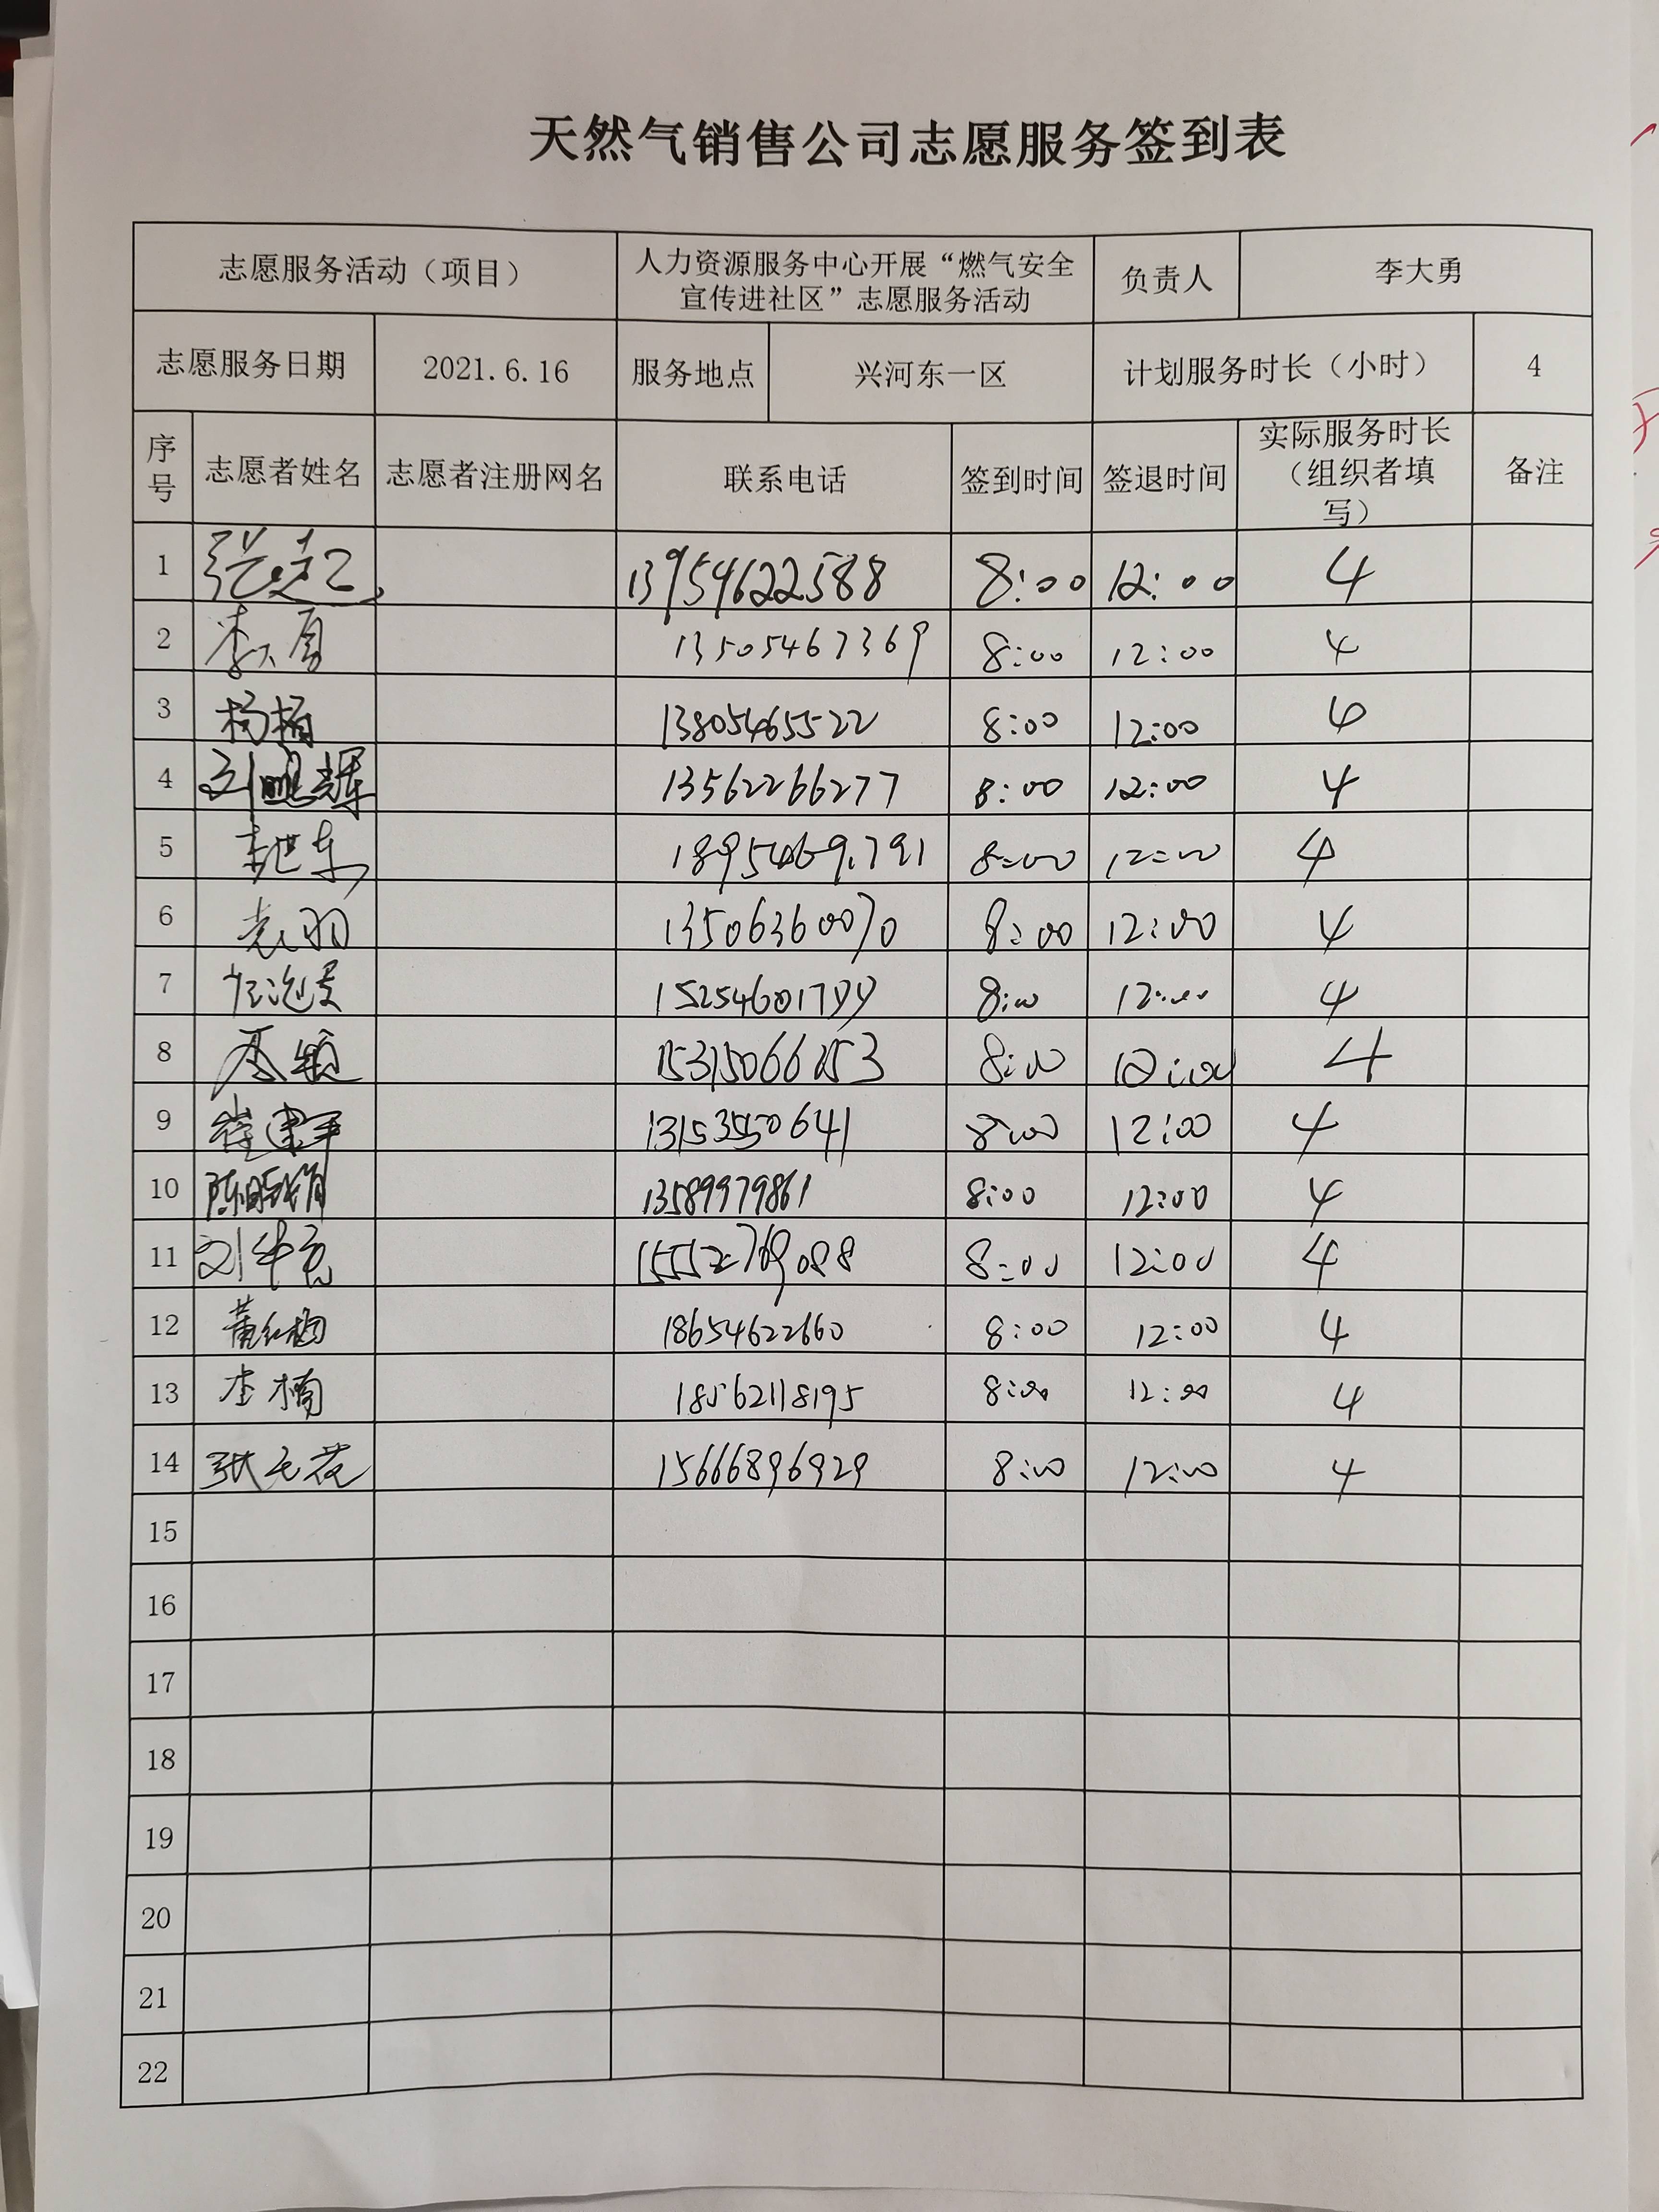 天然气销售公司志愿服务签到表
志愿服务活动（项目） 人力资源服务中心开展“燃气安全宣传进社区”志愿服务活动 负责人 李大勇
志愿服务日期 2021.6.16 服务地点 兴河东一区 计划服务时长（小时） 4
序号 志愿者姓名 志愿者注册网名 联系电话 签到时间 签退时间 实际服务时长（组织者填写） 备注
1 13954622588 8:00 12:00 4
2 李大勇 13505467369 8:00 12:00 4
3 杨楠 13805465522 8:00 12:00 4
4 13562266277 8:00 12:00 4
5 18954691791 8:00 12:00 4
6 袁羽 13506360070 8:00 12:00 4
7 8:00 12:00 4
8 8:00 4
9 崔建平 8:00 12:00 4
10 13589979861 8:00 12:00 4
11 8:00 12:00 4
12 董红梅 18654622660 8:00 12:00 4
13 李楠 18562118195 8:00 12:00 4
14 15666896929 8:00 12:00 4
15
16
17
18
19
20
21
22